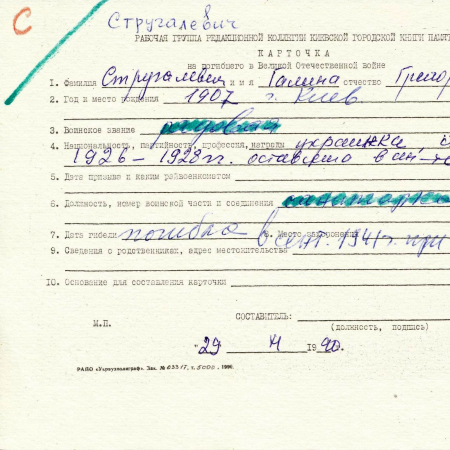 С
Стругалевич
РАБОЧАЯ ГРУППА РЕДАКЦИОННОЙ КОЛЛЕГИИ КИЕВСКОЙ ГОРОДСКОЙ КНИГИ ПАМЯ
КАРТОЧКА
на погибшего в Великой Отечественной войне
1. Фамилия Стругалевич имя Галина отчество Григор
2. Год и место рождения 1907 г. Киев
3. Воинское звание рядовая
4. Национальность, партийность, профессия, награды украинка, с
1926–1928 гг.
5. Дата призыва и каким райвоенкоматом
6. Должность, номер воинской части и соединения
7. Дата гибели погибла в сент. 1941 г. при 8. Место захоронения
9. Сведения о родственниках, адрес местожительства
10. Основание для составления карточки
СОСТАВИТЕЛЬ:
(должность, подпись)
М.П.
"29 1990.
РАПО «Укрвузполиграф». Зак. № 833/7, т. 5000, 1990.